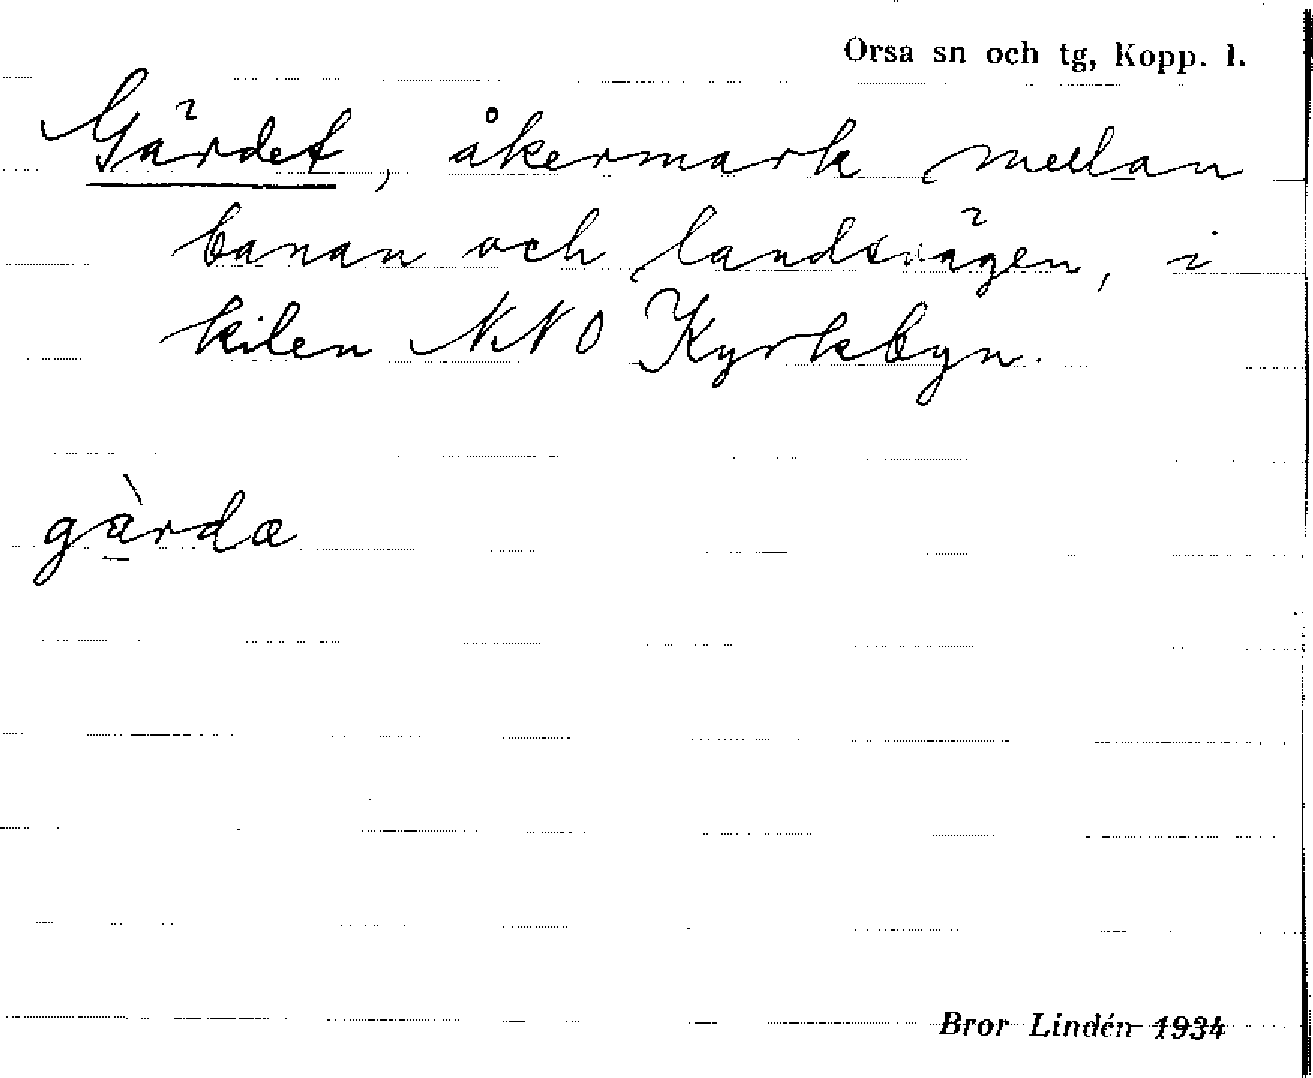 Orsa sn och tg, Kopp. l.
Gärdet, åkermark mellan
banan och landsvägen, i
kilen NNO Kyrkbyn.
gà̠rda
Bror Lindén 1934